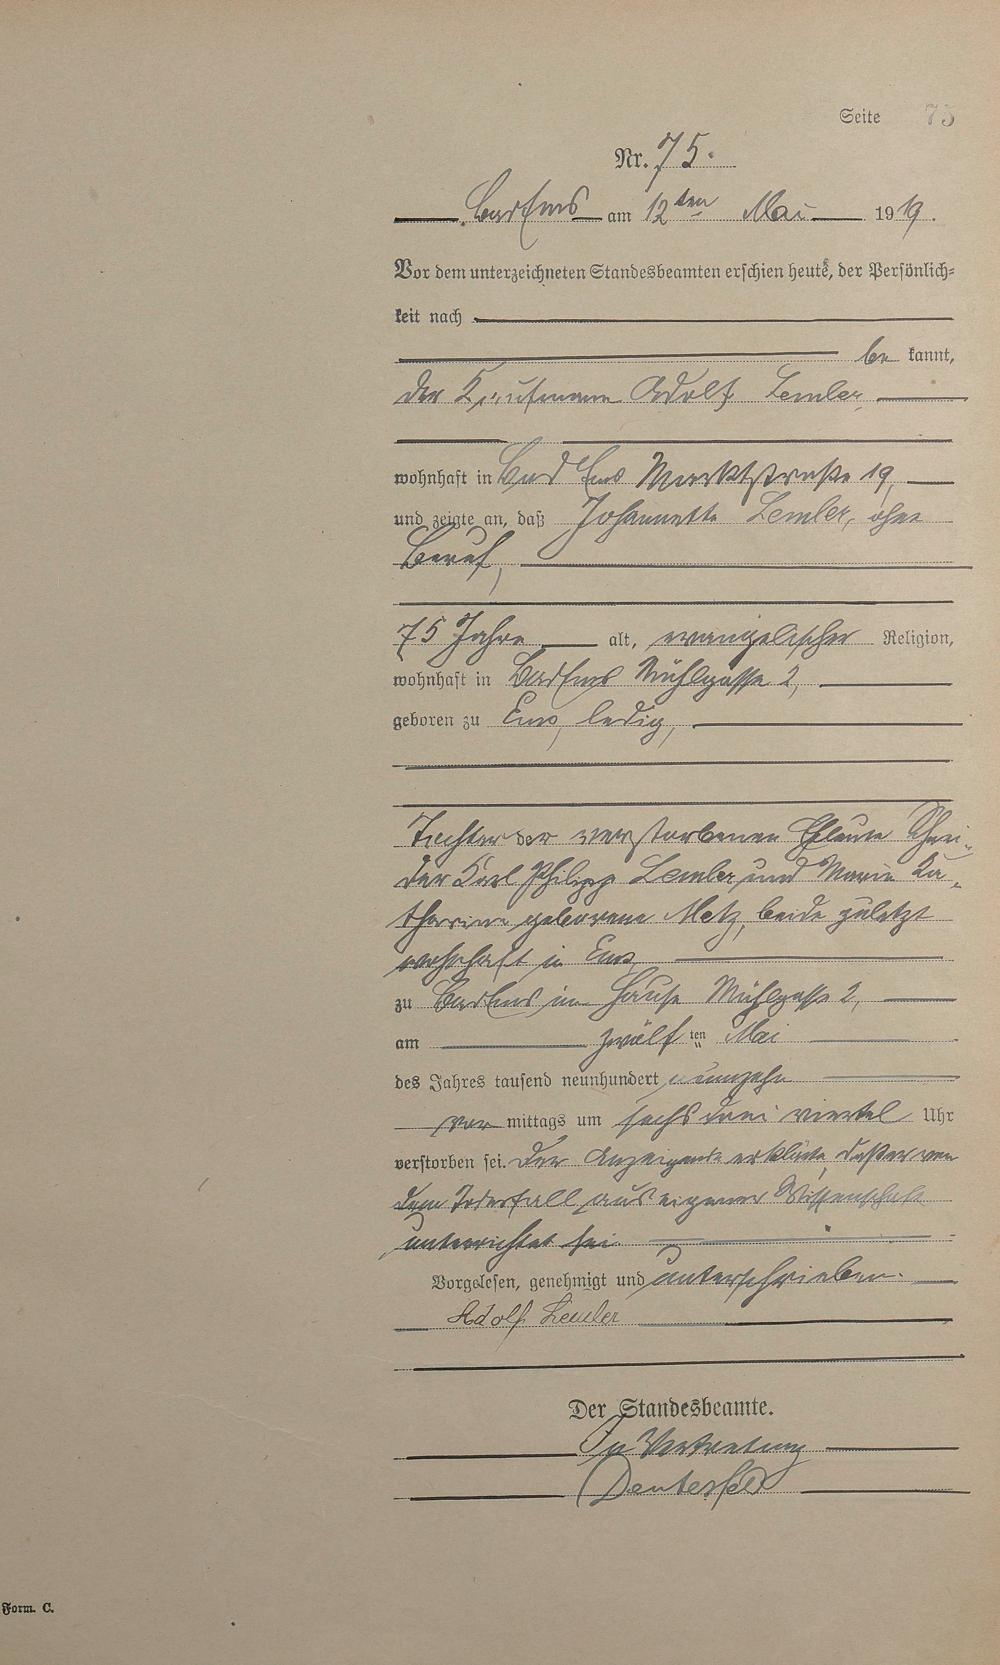 Seite 75
Nr. 75.
Bad Ems am 12ten Mai 1919.
Vor dem unterzeichneten Standesbeamten erschien heute, der Persönlich-
keit nach
be kannt,
der Kaufmann Adolf Lemler,
wohnhaft in Bad Ems Marktstraße 19,
und zeigte an, daß Johannette Lemler, ohne
Beruf,
75 Jahre alt, evangelischer Religion,
wohnhaft in Bad Ems Mühlgasse 2,
geboren zu Ems, ledig,
Tochter der verstorbenen Eheleute Schnei-
der Karl Philipp Lemler und Marie Ka-
tharine geborene Metz, beide zuletzt
wohnhaft in Ems,
zu Bad Ems im Hause Mühlgasse 2,
am zwölf ten Mai
des Jahres tausend neunhundert neunzehn
vor mittags um sechs drei viertel Uhr
verstorben sei. Der Anzeigende erklärte, daß er von
dem Todesfall aus eigener Wissenschaft
unterrichtet sei.
Vorgelesen, genehmigt und unterschrieben.
Adolf Lemler
Der Standesbeamte.
In Vertretung
Form. C.